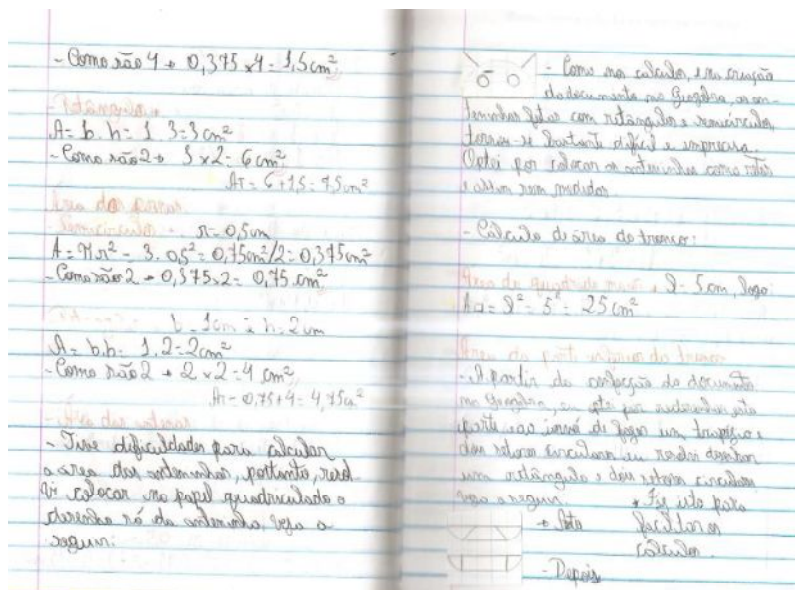 - Como são 4 → 0,375 x 4 = 1,5 cm²
- Retângulos
A = b.h = 1.3 = 3 cm²
- Como são 2 → 3 x 2 = 6 cm²
At = 6 + 1,5 = 7,5 cm²
Área das pernas
- Semicírculo - r = 0,5 cm
A = π.r² = 3.0,5² = 0,75 cm²/2 = 0,375 cm²
- Como são 2 → 0,375 x 2 = 0,75 cm²
b = 1cm e h = 2cm
A = b.h = 1.2 = 2cm²
- Como são 2 → 2 x 2 = 4 cm²
At = 0,75 + 4 = 4,75 cm²
- Área das antenas
- Tive dificuldades para calcular
a área das anteninhas, portanto, resol
vi colocar no papel quadriculado o
desenho só da anteninha, veja a
seguir:
- Como no cálculo, e na criação
do documento no Geogebra, as an-
teninhas feitas com retângulos e semicírculos,
tornou-se bastante difícil e imprecisa.
Optei por colocar as anteninhas como retas
e assim sem medidas.
- Cálculo da área do tronco:
Área do quadrado l = 5 cm, logo:
A = l² = 5² = 25 cm²
Área da parte inferior do tronco
- A partir da confecção do documento
no Geogebra, eu optei por redesenhar esta
parte e ao invés de fazer um trapézio e
dois setores circulares eu resolvi desenhar
um retângulo e dois setores circulares
veja a seguir * Fiz isto para
facilitar os
cálculos.
- Depois